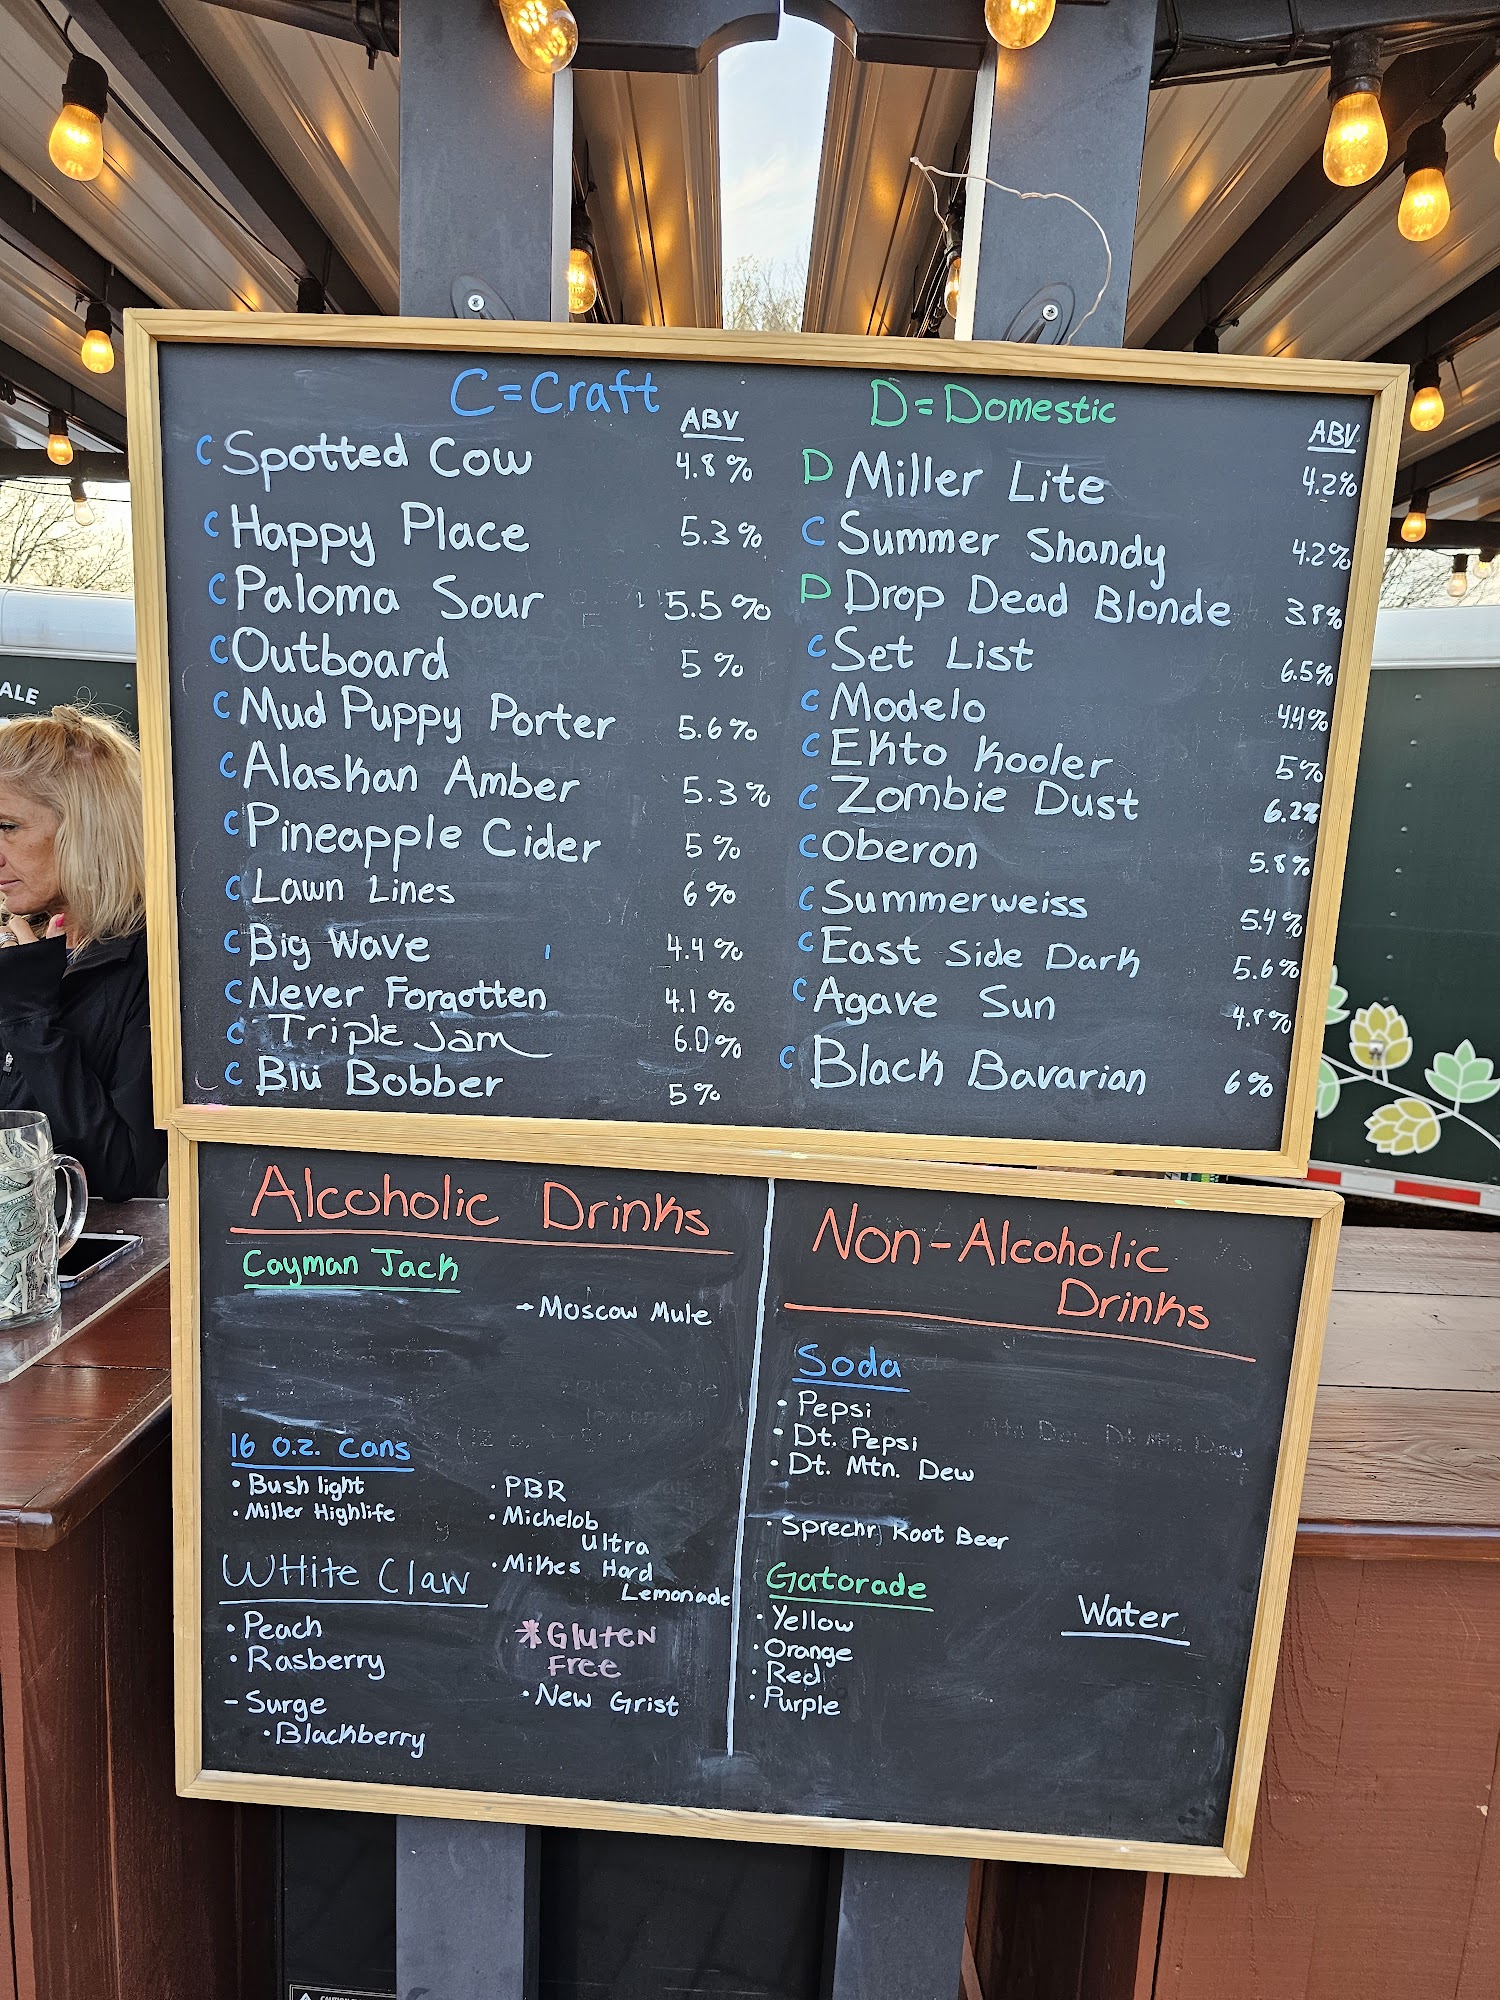 C=Craft
ABV
C Spotted Cow 4.8%
C Happy Place 5.3%
C Paloma Sour 5.5%
C Outboard 5%
C Mud Puppy Porter 5.6%
C Alaskan Amber 5.3%
C Pineapple Cider 5%
C Lawn Lines 6%
C Big Wave 4.4%
C Never Forgotten 4.1%
C Triple Jam 6.0%
C Blü Bobber 5%
D=Domestic
ABV
D Miller Lite 4.2%
C Summer Shandy 4.2%
D Drop Dead Blonde 3.8%
C Set List 6.5%
C Modelo 4.4%
C Ekto Kooler 5%
C Zombie Dust 6.2%
C Oberon 5.8%
C Summerweiss 5.4%
C East Side Dark 5.6%
C Agave Sun 4.8%
C Black Bavarian 6%
ALE
Alcoholic Drinks
Cayman Jack
- Moscow Mule
16 o.z. Cans
• Bush light
• Miller Highlife
• PBR
• Michelob
Ultra
• Mikes Hard
Lemonade
White Claw
• Peach
• Rasberry
- Surge
• Blackberry
*Gluten
Free
• New Grist
Non-Alcoholic
Drinks
Soda
• Pepsi
• Dt. Pepsi
• Dt. Mtn. Dew
• Sprechr Root Beer
Gatorade
• Yellow
• Orange
• Red
• Purple
Water